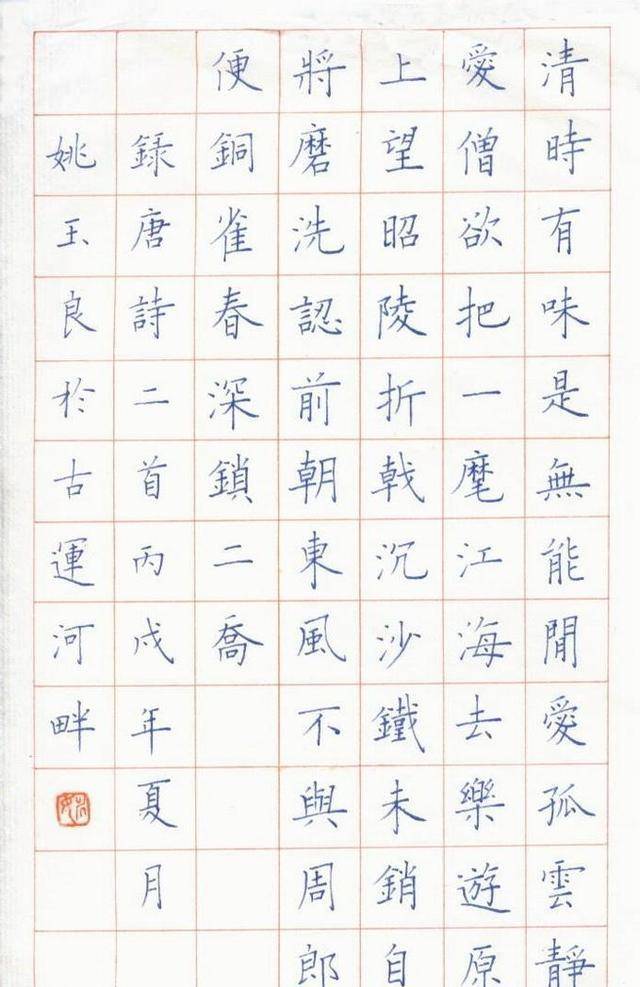 清時有味是無能閒愛孤雲靜
愛僧欲把一麾江海去樂遊原
上望昭陵折戟沉沙鐵未銷自
將磨洗認前朝東風不與周郎
便銅雀春深鎖二喬
錄唐詩二首丙戌年夏月
姚玉良於古運河畔